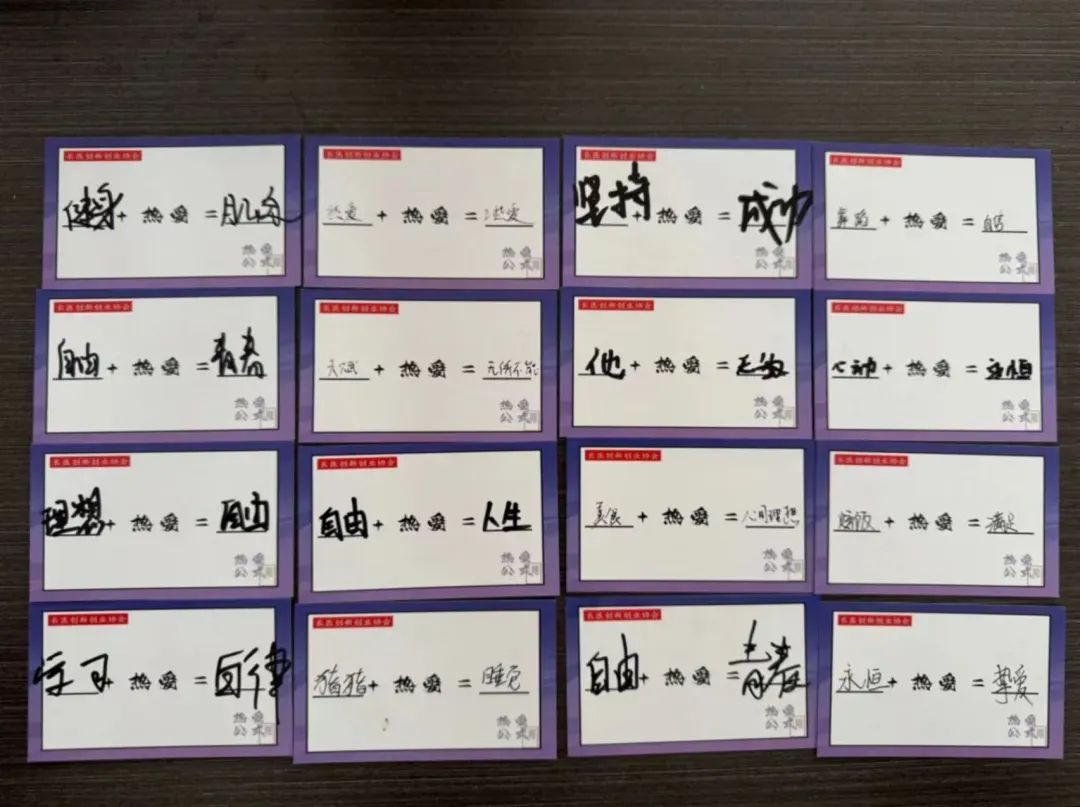 长医创新创业协会
健身+热爱=肌肉
热爱公式
长医创新创业协会
热爱+热爱=热爱
热爱公式
长医创新创业协会
坚持+热爱=成功
热爱公式
长医创新创业协会
+热爱=
热爱公式
长医创新创业协会
自由+热爱=青春
热爱公式
长医创新创业协会
天赋+热爱=无所不能
热爱公式
长医创新创业协会
他+热爱=无敌
热爱公式
长医创新创业协会
心动+热爱=永恒
热爱公式
长医创新创业协会
理想+热爱=自由
热爱公式
长医创新创业协会
自由+热爱=人生
热爱公式
长医创新创业协会
美食+热爱=心间理想
热爱公式
长医创新创业协会
炫饭+热爱=满足
热爱公式
长医创新创业协会
学习+热爱=自律
热爱公式
长医创新创业协会
猪猪+热爱=睡觉
热爱公式
长医创新创业协会
自由+热爱=青春
热爱公式
长医创新创业协会
永恒+热爱=挚爱
热爱公式